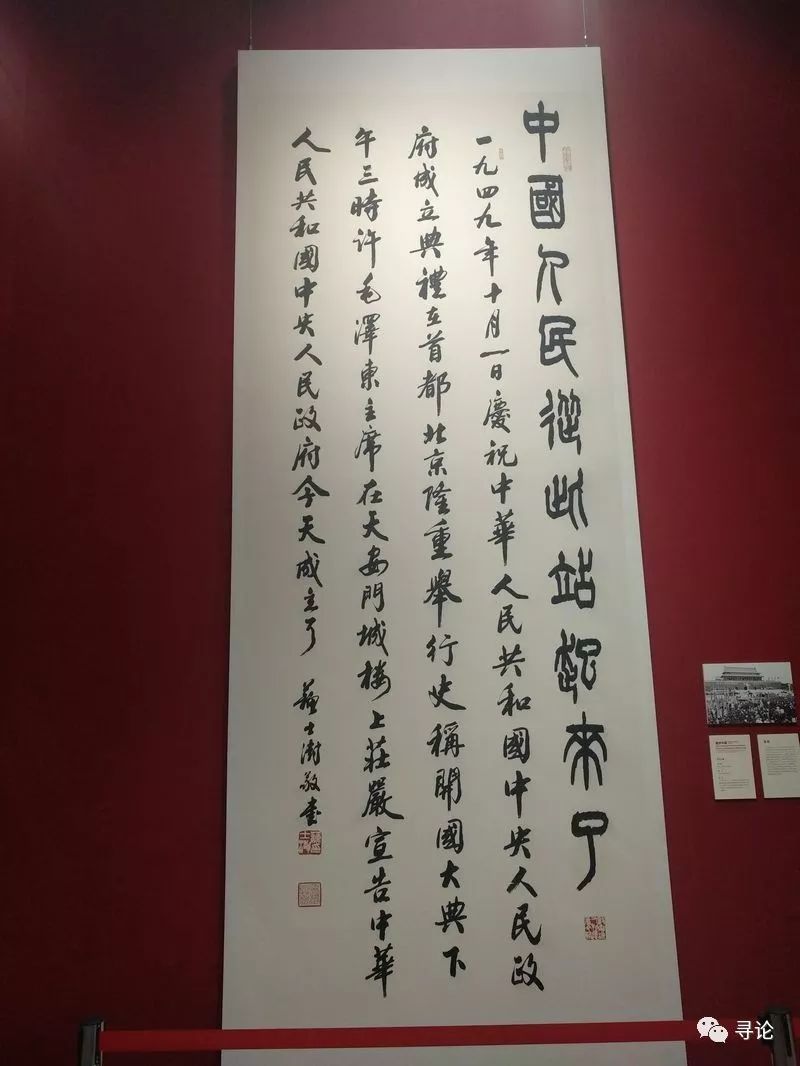 中國人民從此站起來了
一九四九年十月一日慶祝中華人民共和國中央人民政
府成立典禮在首都北京隆重舉行史稱開國大典下
午三時許毛澤東主席在天安門城樓上莊嚴宣告中華
人民共和國中央人民政府今天成立了 蘇士澍敬書
寻论